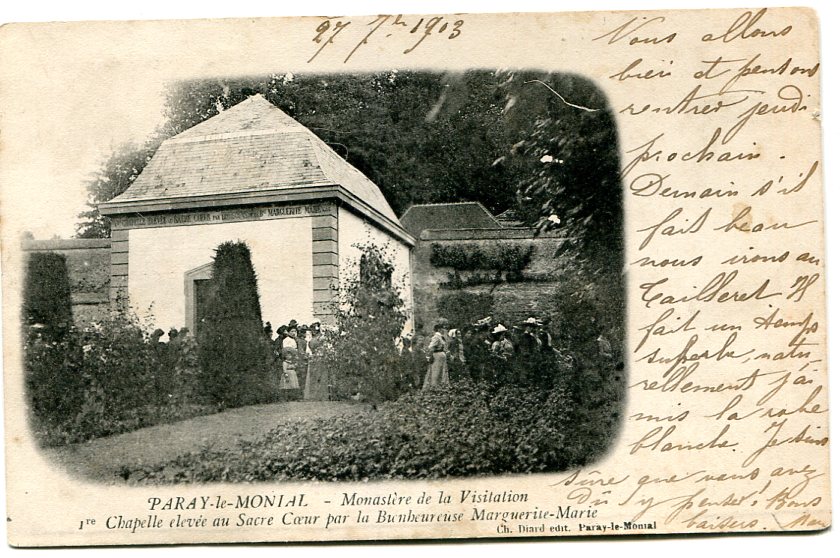 27 7bre 1903
Vous allons
bien et pensons
rentrer jeudi
prochain.
Demain s'il
fait beau
nous irons au
Tailseret. Il
fait un temps
superbe, natu-
rellement j'ai
mis la robe
blanche. Je suis
sûre que vous avez
dû y penser! Bons
baisers.
PARAY-le-MONIAL - Monastère de la Visitation
1re Chapelle elevée au Sacre Cœur par la Bienheureuse Marguerite-Marie
Ch. Diard edit. Paray-le-Monial